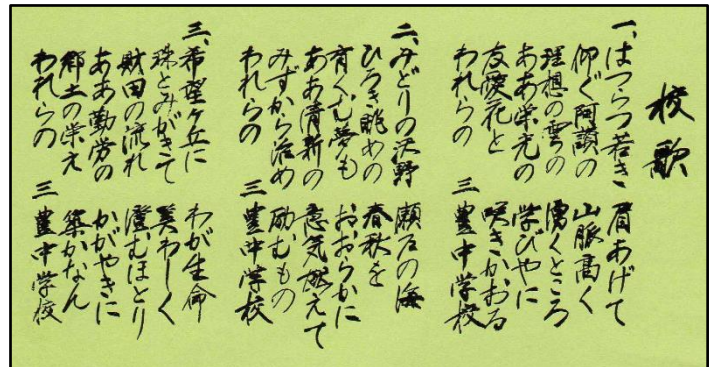 校歌
一、はつらつ若き 眉あげて
仰ぐ阿讃の 山脈高く
理想の雲の 湧くところ
ああ栄光の 学びやに
友愛花と 咲きかおる
われらの 三豊中学校
二、みどりの沃野 瀬戸の海
ひろき眺めの 春秋を
育くむ夢も おおらかに
ああ清新の 意気燃えて
みずから治め 励むもの
われらの 三豊中学校
三、希望ヶ丘に わが生命
珠とみがきて 美わしく
財田の流れ 澄むほとり
ああ勤労の かがやきに
郷土の栄え 築かなん
われらの 三豊中学校